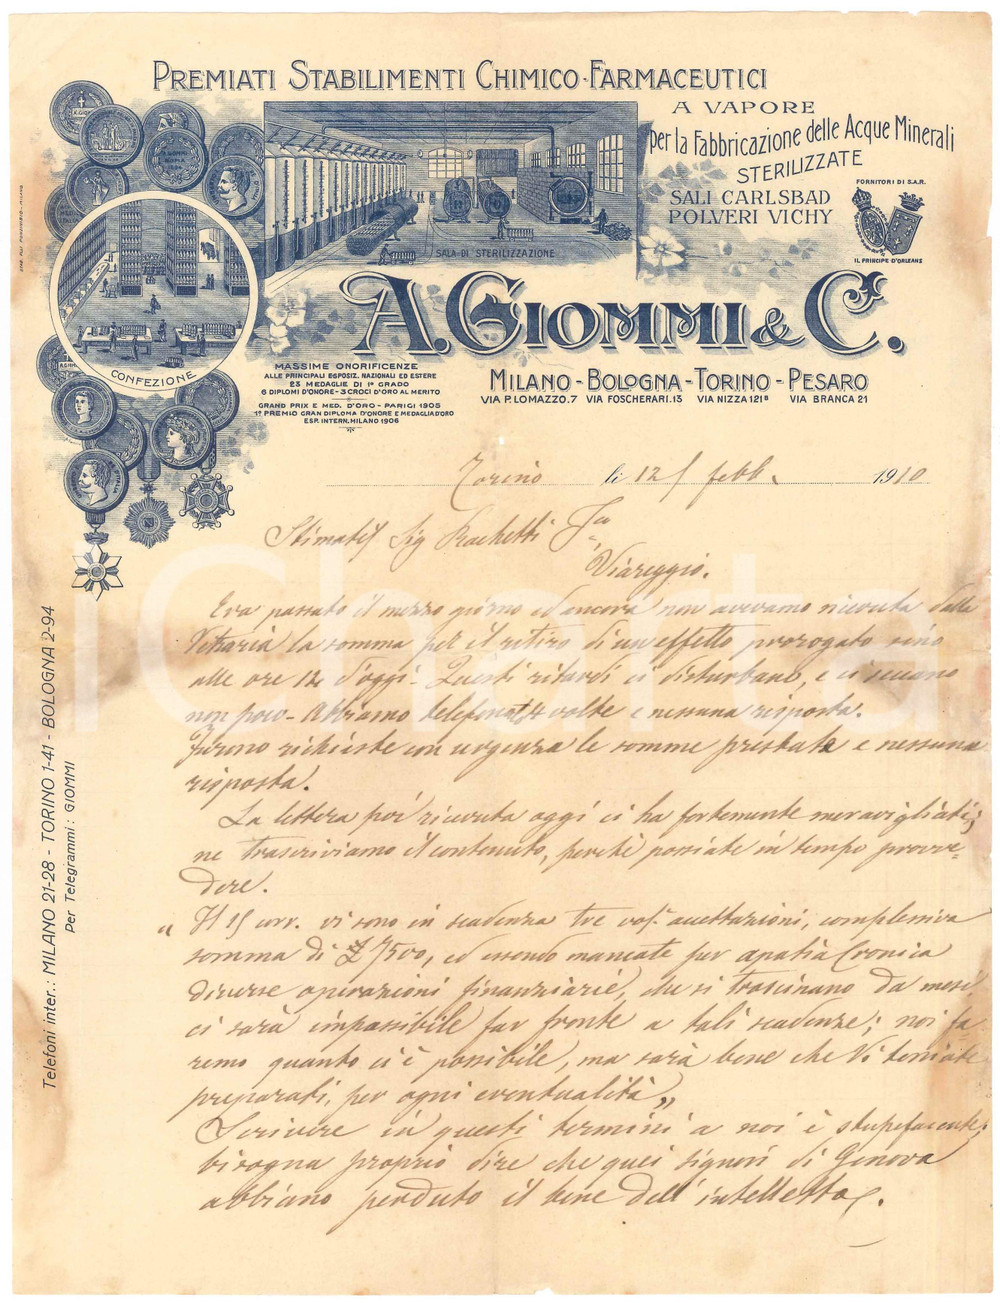 PREMIATI STABILIMENTI CHIMICO-FARMACEUTICI
A VAPORE
per la Fabbricazione delle Acque Minerali
STERILIZZATE
SALI CARLSBAD
POLVERI VICHY
FORNITORI DI S.A.R.
IL PRINCIPE D'ORLEANS
SALA DI STERILIZZAZIONE
CONFEZIONE
A. GIOMMI & C.
MASSIME ONORIFICENZE
ALLE PRINCIPALI ESPOSIZ. NAZIONALI ED ESTERE
23 MEDAGLIE DI 1º GRADO
6 DIPLOMI D'ONORE - 3 CROCI D'ORO AL MERITO
GRAND PRIX E MED. D'ORO - PARIGI 1905
1º PREMIO GRAN DIPLOMA D'ONORE E MEDAGLIA D'ORO
ESP. INTERN. MILANO 1906
MILANO - BOLOGNA - TORINO - PESARO
VIA P. LOMAZZO. 7 VIA FOSCHERARI. 13 VIA NIZZA 121B VIA BRANCA 21
Torino li 12/ febb. 1910
Stimatis Sig Rachetti
Viareggio.
Era passato il mezzo giorno ed ancora non avevamo ricevuta dalla
Vetraria la somma per il ritiro di un effetto prorogato sino
alle ore 12 d'oggi. Questi ritardi ci disturbano, e ci seccano
non poco. Abbiamo telefonat 4 volte e nessuna risposta.
Furono richieste con urgenza le somme prestate e nessuna
risposta.
La lettera poi ricevuta oggi ci ha fortemente meravigliati;
ne trascriviamo il contenuto, perchè possiate in tempo provve-
dere.
"Il 15 corr. vi sono in scadenza tre vos. accettazioni, complessiva
somma di £ 7500, ed essendo mancate per apatia Cronica
diverse operazioni finanziarie, che si trascinano da mesi,
ci sarà impossibile far fronte a tali scadenze; noi fa
remo quanto ci è possibile, ma sarà bene che Vi teniate
preparati, per ogni eventualità"
Scrivere in questi termini a noi è stupefacente;
bisogna proprio dire che quei signori di Genova
abbiano perduto il bene dell'intelletto.
Telefoni inter.: MILANO 21-28 - TORINO 1-41 - BOLOGNA 2-94
Per Telegrammi: GIOMMI
iCharta